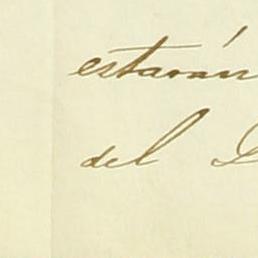 estarán
del